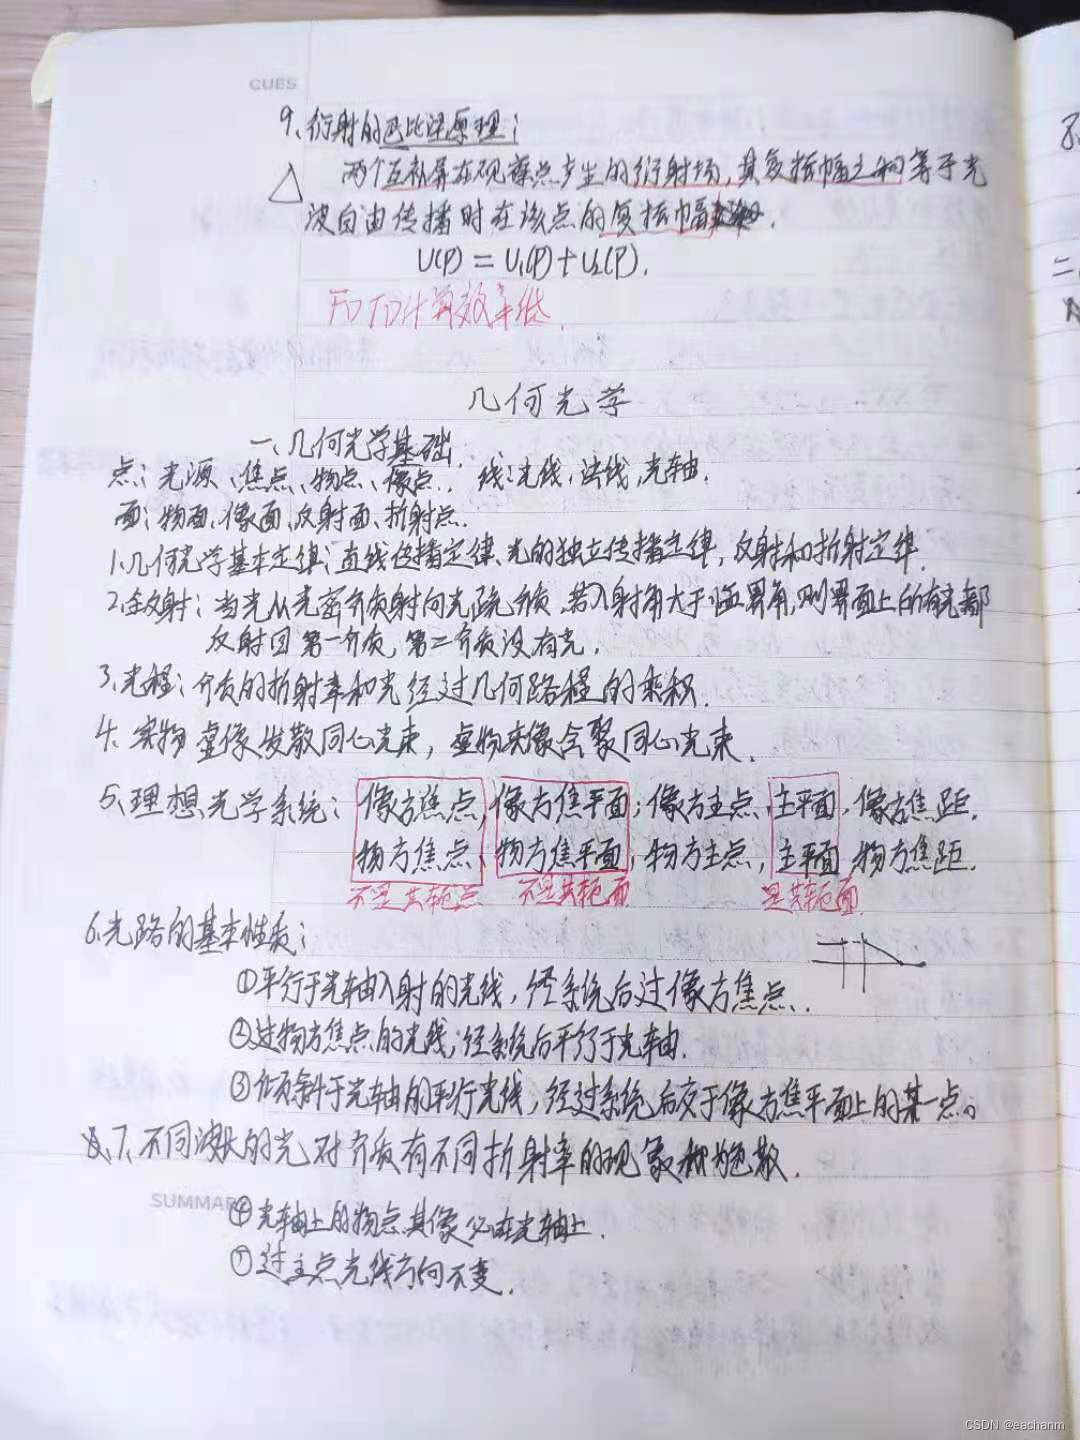 CUES
9、衍射的巴比涅原理：
两个互补屏在观察点产生的衍射场，其复振幅之和等于光
波自由传播时在该点的复振幅
U(P) = U₁(P)+U₂(P).
FDTD计算效率低.
几何光学
一、几何光学基础.
点：光源、焦点、物点、像点. 线：光线、法线、光轴.
面：物面、像面、反射面、折射点.
1、几何光学基本定律：直线传播定律、光的独立传播定律，反射和折射定律.
2、全反射：当光从光密介质射向光疏介质，若入射角大于临界角，则界面上的所有光都
反射回第一介质，第二介质没有光.
3、光程：介质的折射率和光经过几何路程的乘积.
4、实物虚像发散同心光束，虚物实像会聚同心光束.
5、理想光学系统：像方焦点，像方焦平面；像方主点、主平面，像方焦距.
物方焦点、物方焦平面，物方主点，主平面 物方焦距.
不是共轭点 不是共轭面 是共轭面.
6、光路的基本性质：
①平行于光轴入射的光线，经系统后过像方焦点.
②过物方焦点的光线；经系统后平行于光轴.
③倾斜于光轴的平行光线，经过系统后交于像方焦平面上的某一点。
7、不同波长的光对介质有不同折射率的现象称为色散.
SUMMAR
④光轴上的物点其像必在光轴上.
⑦过主点光线方向不变.
CSDN @eachanm